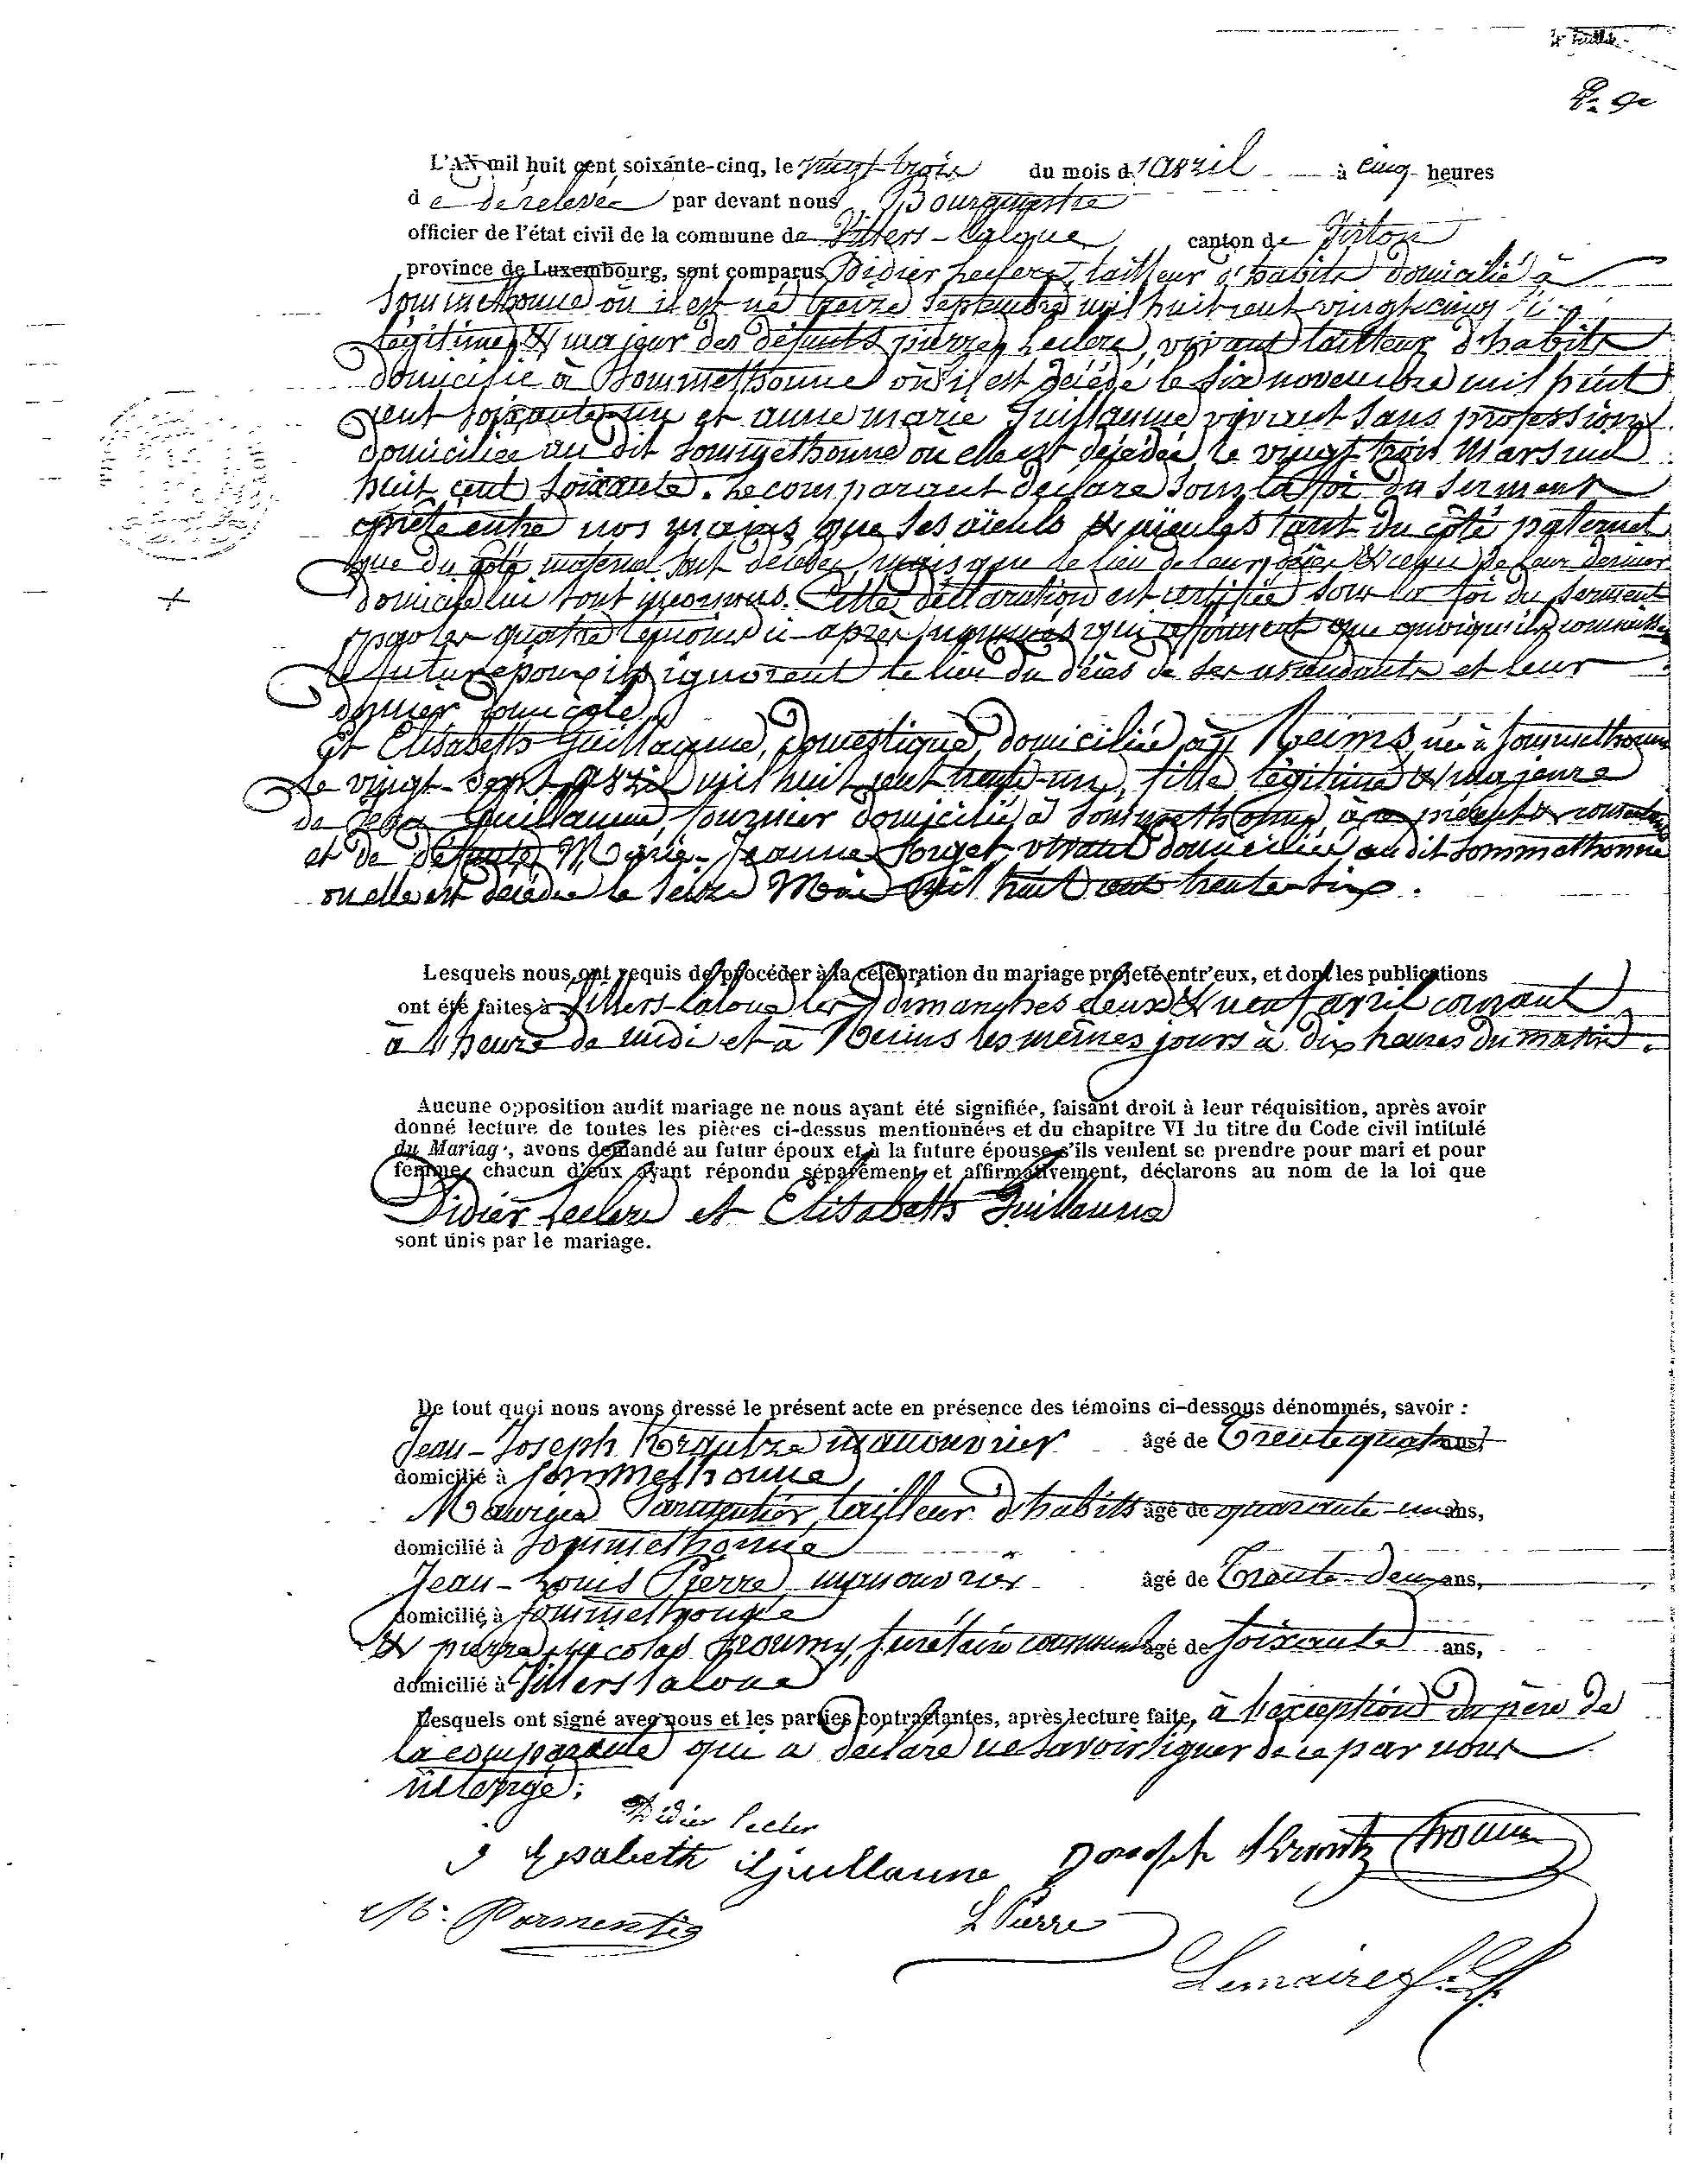 L'AN mil huit cent soixante-cinq, le vingt-trois du mois d'avril à cinq heures
de de relevée par devant nous Bourgmestre
officier de l'état civil de la commune de Villers-laloue canton de Virton
province de Luxembourg, sont comparus Didier Leclere, tailleur d'habits domicilié à
Sommethonne où il est né treize septembre mil huit cent vingt cinq
légitime & majeur des défunts pierre Leclere, vivant tailleur d'habits
domicilié à Sommethonne où il est décédé le six novembre mil huit
cent soixante-un et anne marie Guillaume vivant sans profession
domiciliée au dit Sommethonne où elle est décédée le vingt trois Mars mil
huit cent soixante. Le comparant déclare sous la foi du serment
prêté entre nos mains que ses aïeuls & aïeules tant du côté paternel
que du côté maternel sont décédés, mais que le lieu de leur décès & celui de leur dernier
domicile lui sont inconnus. Cette déclaration est certifiée sous la foi du serment
par les quatre témoins ci-après nommés qui affirment que quoiqu'ils connaissent
le futur époux ils ignorent le lieu du décès de ses ascendants et leur
dernier domicile.
Et Elisabeth Guillaume, domestique, domiciliée à Reims, née à Sommethonne
le vingt-sept avril mil huit cent trente-un, fille légitime & majeure
de Jean Guillaume, journier domicilié à Sommethonne, à ce présent & consentant
et de défunte Marie-Jeanne Forget, vivant domiciliée au dit Sommethonne
où elle est décédée le seize Mai mil huit cent trente-six.
Lesquels nous ont requis de procéder à la célébration du mariage projeté entr'eux, et dont les publications
ont été faites à Villers-laloue les dimanches deux & neuf avril courant
à l'heure de midi et à Reims les mêmes jours à dix heures du matin.
Aucune opposition audit mariage ne nous ayant été signifiée, faisant droit à leur réquisition, après avoir
donné lecture de toutes les pièces ci-dessus mentionnées et du chapitre VI du titre du Code civil intitulé
du Mariage, avons demandé au futur époux et à la future épouse s'ils veulent se prendre pour mari et pour
femme, chacun d'eux ayant répondu séparément et affirmativement, déclarons au nom de la loi que
Didier Leclere et Elisabeth Guillaume
sont unis par le mariage.
De tout quoi nous avons dressé le présent acte en présence des témoins ci-dessous dénommés, savoir :
Jean-Joseph manouvrier âgé de Trente quatre ans,
domicilié à Sommethonne
Maurice Parmentier, tailleur d'habits âgé de quarante-un ans,
domicilié à Sommethonne
Jean-Louis Pierre manouvrier âgé de Trente-deux ans,
domicilié à Sommethonne
& pierre nicolas secrétaire communal âgé de soixante ans,
domicilié à Villers laloue
Lesquels ont signé avec nous et les parties contractantes, après lecture faite, à l'exception du père de
la comparante qui a déclaré ne savoir signer de ce par nous
interpellé.
Didier Lecler
Elisabeth Guillaume Joseph
M. Parmentier L Pierre
Lemaire